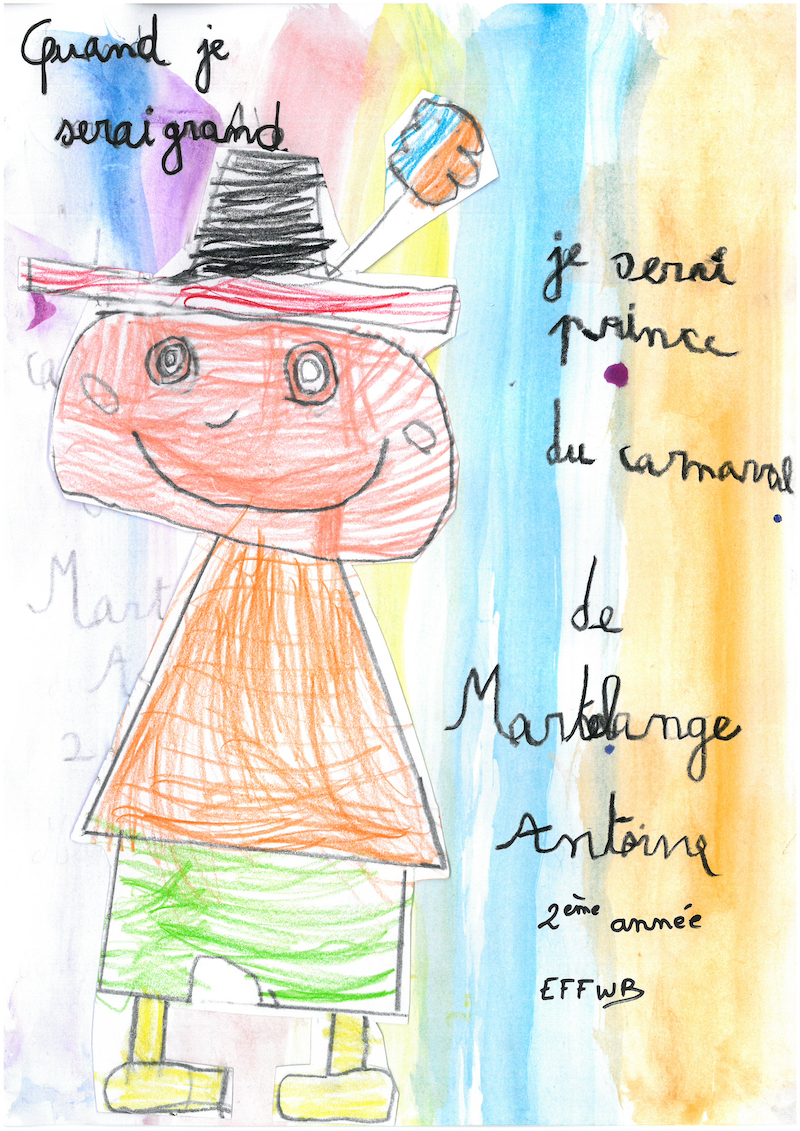 Quand je
serai grand
je serai
prince
du carnaval
de
Martelange
Antoine
2ème année
EFFWB